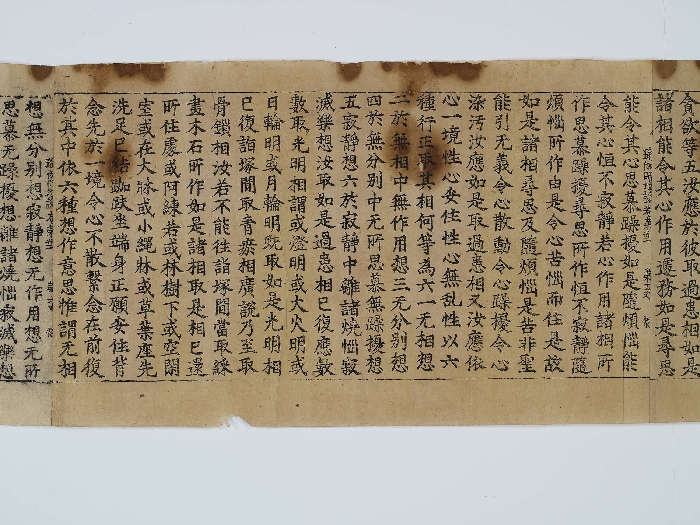 貪欲等五汝應於彼取過患相如是
諸相能令其心作用遽務如是尋思
能令其心思慕躁擾如是隨煩惱能
令其心恒不寂靜若心作用諸相所
作思慕躁擾尋思所作恒不寂靜隨
煩惱所作由是令心苦惱而住是故
如是諸相尋思及隨煩惱是苦非聖
能引无義令心散動令心躁擾令心
染汚汝應如是取過患相又汝應依
心一境性心安住性心無乱性以六
種行正取其相何等為六一无相想
二於無相中無作用想三无分别想
四於無分别中无所思慕無躁擾想
五寂靜想六於寂靜中離諸燒惱寂
滅樂想汝取如是過患相已復應數
數取光明相謂或燈明或大火明或
日輪明或月輪明既取如是光明相
已復詣塚間取青瘀相廣說乃至取
骨鎖相汝若不能往詣塚間當取綵
畫木石所作如是諸相取是相已還
所住處或阿練若或林樹下或空閑
室或在大牀或小繩牀或草葉座先
洗足已結跏趺坐端身正願安住背
念先於一境令心不散繫念在前復
於其中依六種想作意思惟謂无相
想無分别想寂靜想无作用想无所
思慕无躁擾想離諸燒惱寂滅樂想